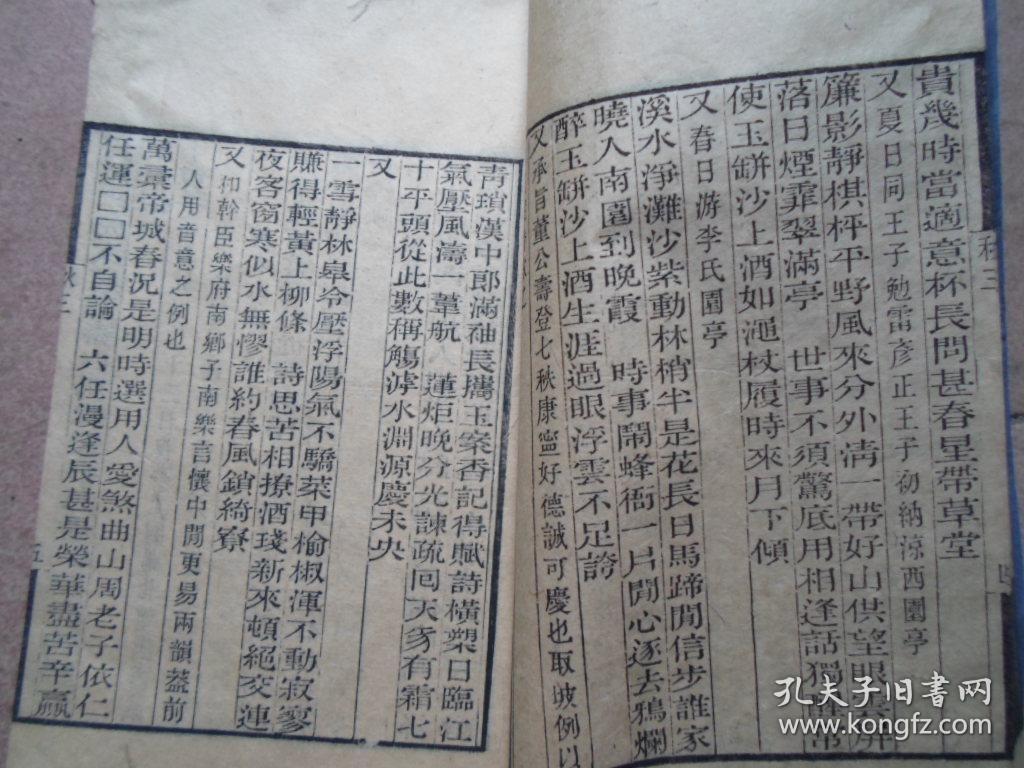 貴幾時當適意杯長問甚春星帶草堂
又夏日同王子勉雷彦正王子初納涼西園亭
簾影靜棋枰平野風來分外清一帶好山供望眼
落日煙霏翠滿亭　世事不須驚底用相逢話獨
使玉缾沙上酒如澠杖履時來月下傾
又春日游李氏園亭
溪水淨灘沙紫動林梢半是花長日馬蹄閒信步誰家
曉入南園到晚霞　時事鬧蜂衙一片閒心逐去鴉爛
醉玉缾沙上酒生涯過眼浮雲不足誇
又承旨董公壽登七秋康寧好德誠可慶也取坡例以
青瑣漢中郎滿袖長攜玉案香記得賦詩橫槊日臨江
氣壓風濤一葦航　蓮炬晚分光諫疏回天豸有霜七
十平頭從此數稱觴滹水淵源慶未央
又
一雪靜林皋冷壓浮陽氣不驕菜甲榆椒渾不動寂寥
賺得輕黃上柳條　詩思苦相撩酒琖新來頓絕交連
夜客窗寒似水無憀誰約春風鎖綺寮
又和幹臣樂府南鄉子南樂言懷中間更易兩韻葢前
人用音意之例也
萬彚帝城春況是明時選用人愛煞曲山周老子依仁
任運□□不自論　六任漫逢辰甚是榮華盡苦辛贏
秋三
四
秋三
五
孔夫子旧书网
www.kongfz.com